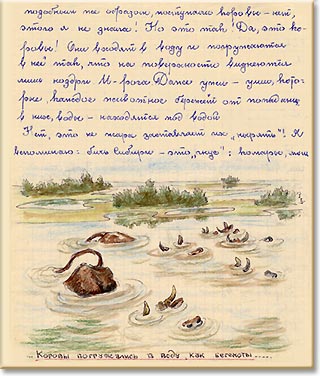 подобным же образом поступали коровы – нет,
этого я не знала! Но это так! Да, это ко-
ровы! Они входят в воду и погружаются
в неё так, что на поверхности виднеются
лишь ноздри. И – рога. Даже уши – уши, кото-
рые каждое животное бережёт от попадани[я]
в них воды – находятся под водой.
Нет, это не жара заставляет их „нырять“! Я
вспоминаю: бич Сибири – это „гнус“: комары, мош
... Коровы погружались в воду, как бегемоты .....